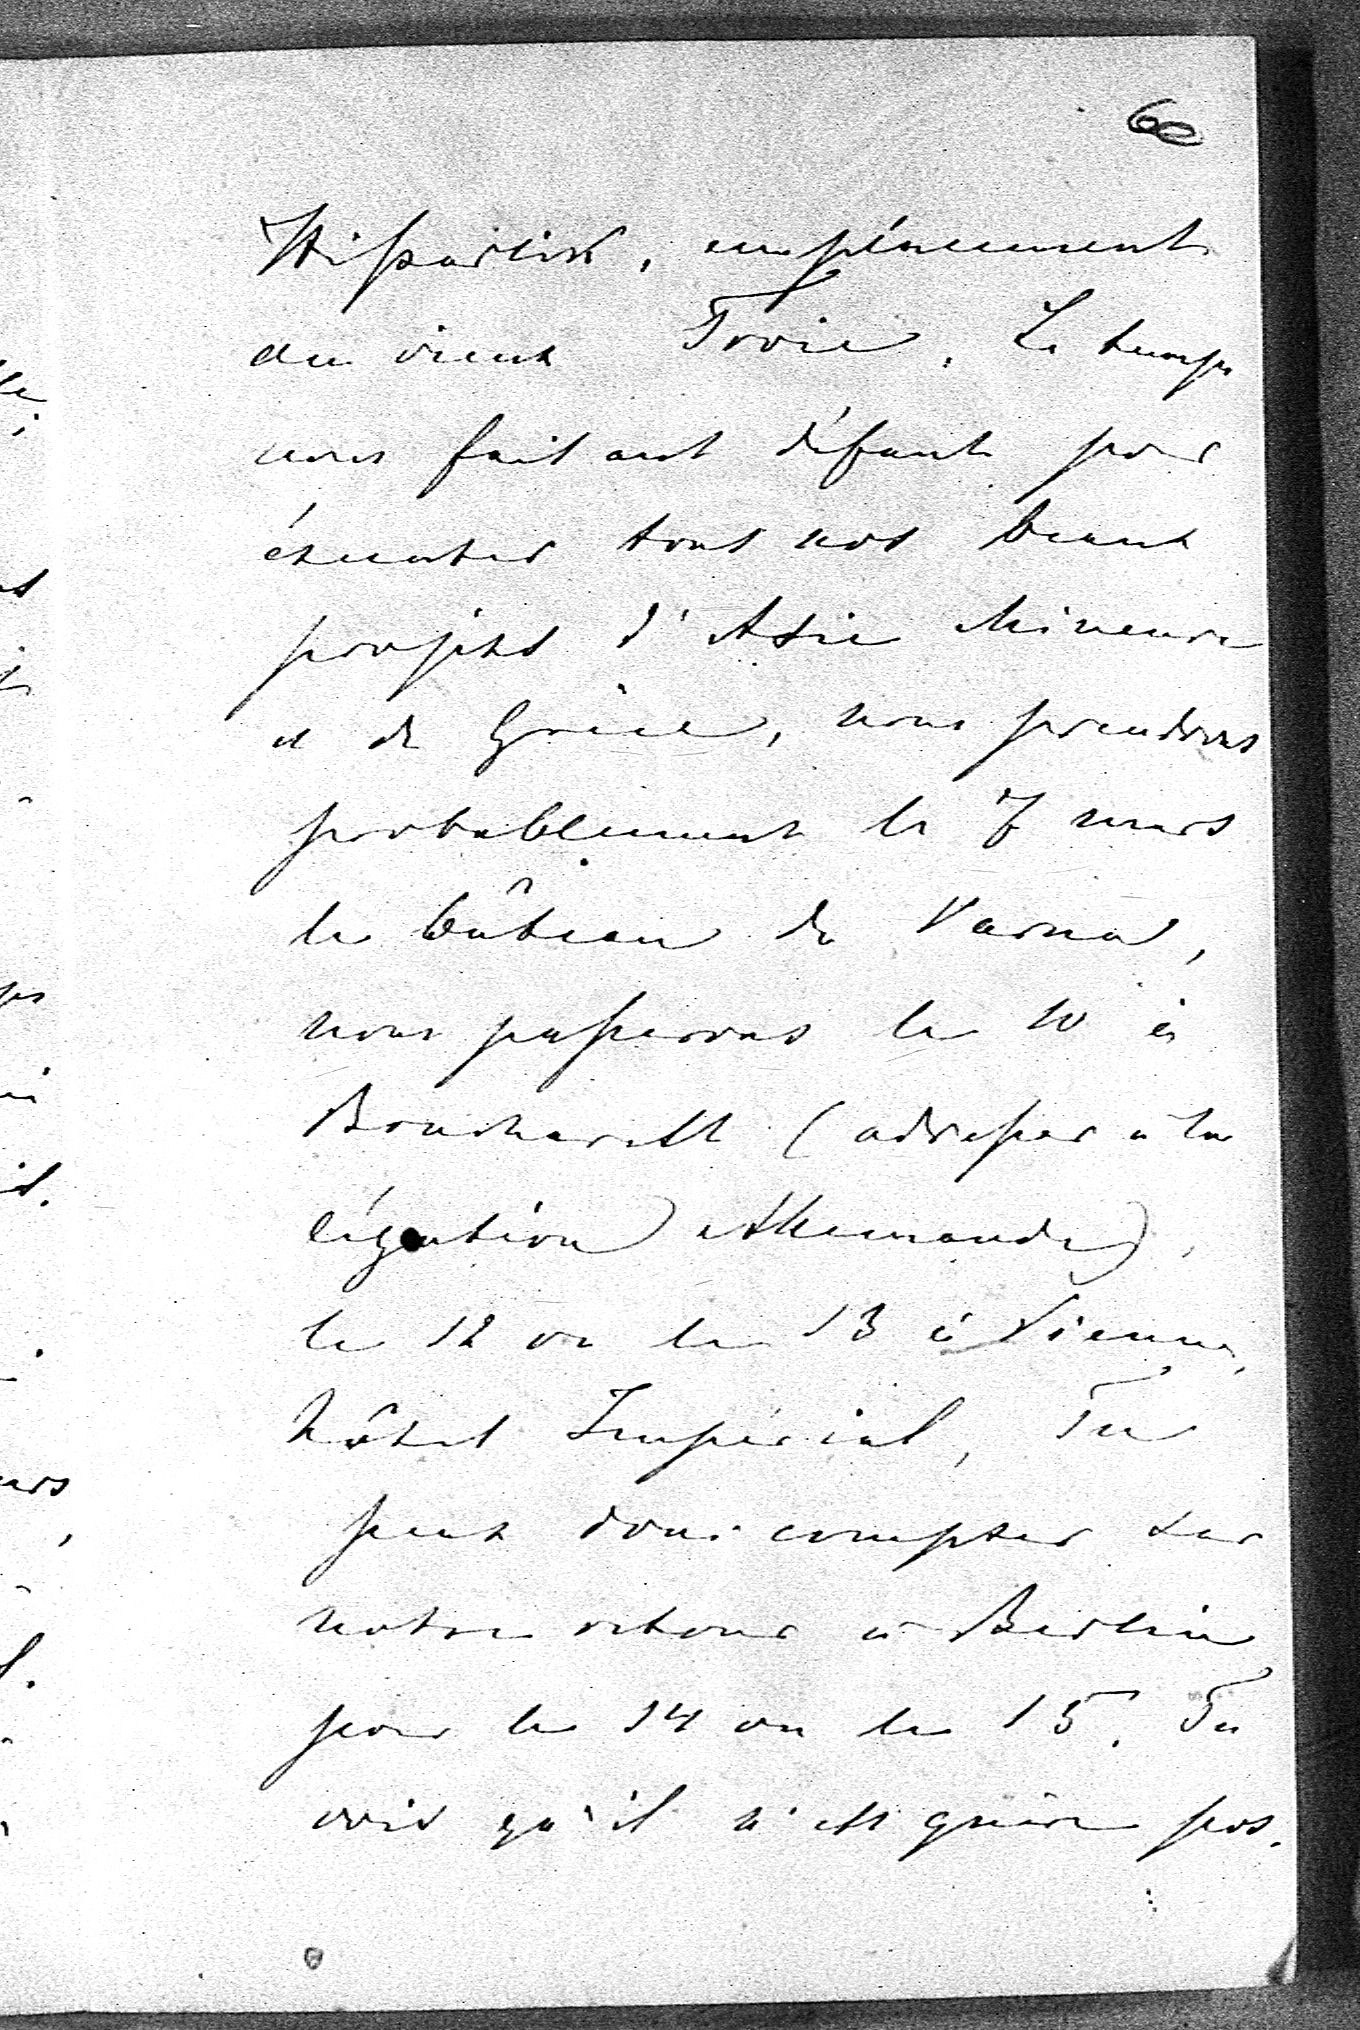 60
Hissarlik, emplacement
du vieux Troie. Le temps
nous faisant défaut pour
éxecuter tous nos beaux
projets d'Asie Mineure
et de Grèce, nous prendrons
probablement le 7 mars
le bâteau de Varna,
nous passerons le 10 à
Boucharest (adresser à la
légation Allemande),
le 12 ou le 13 à Vienne,
hôtel Impérial, Tu
peux donc compter sur
notre retour à Berlin
pour le 14 ou le 15. Tu
vois qu'il n'est guère pos-